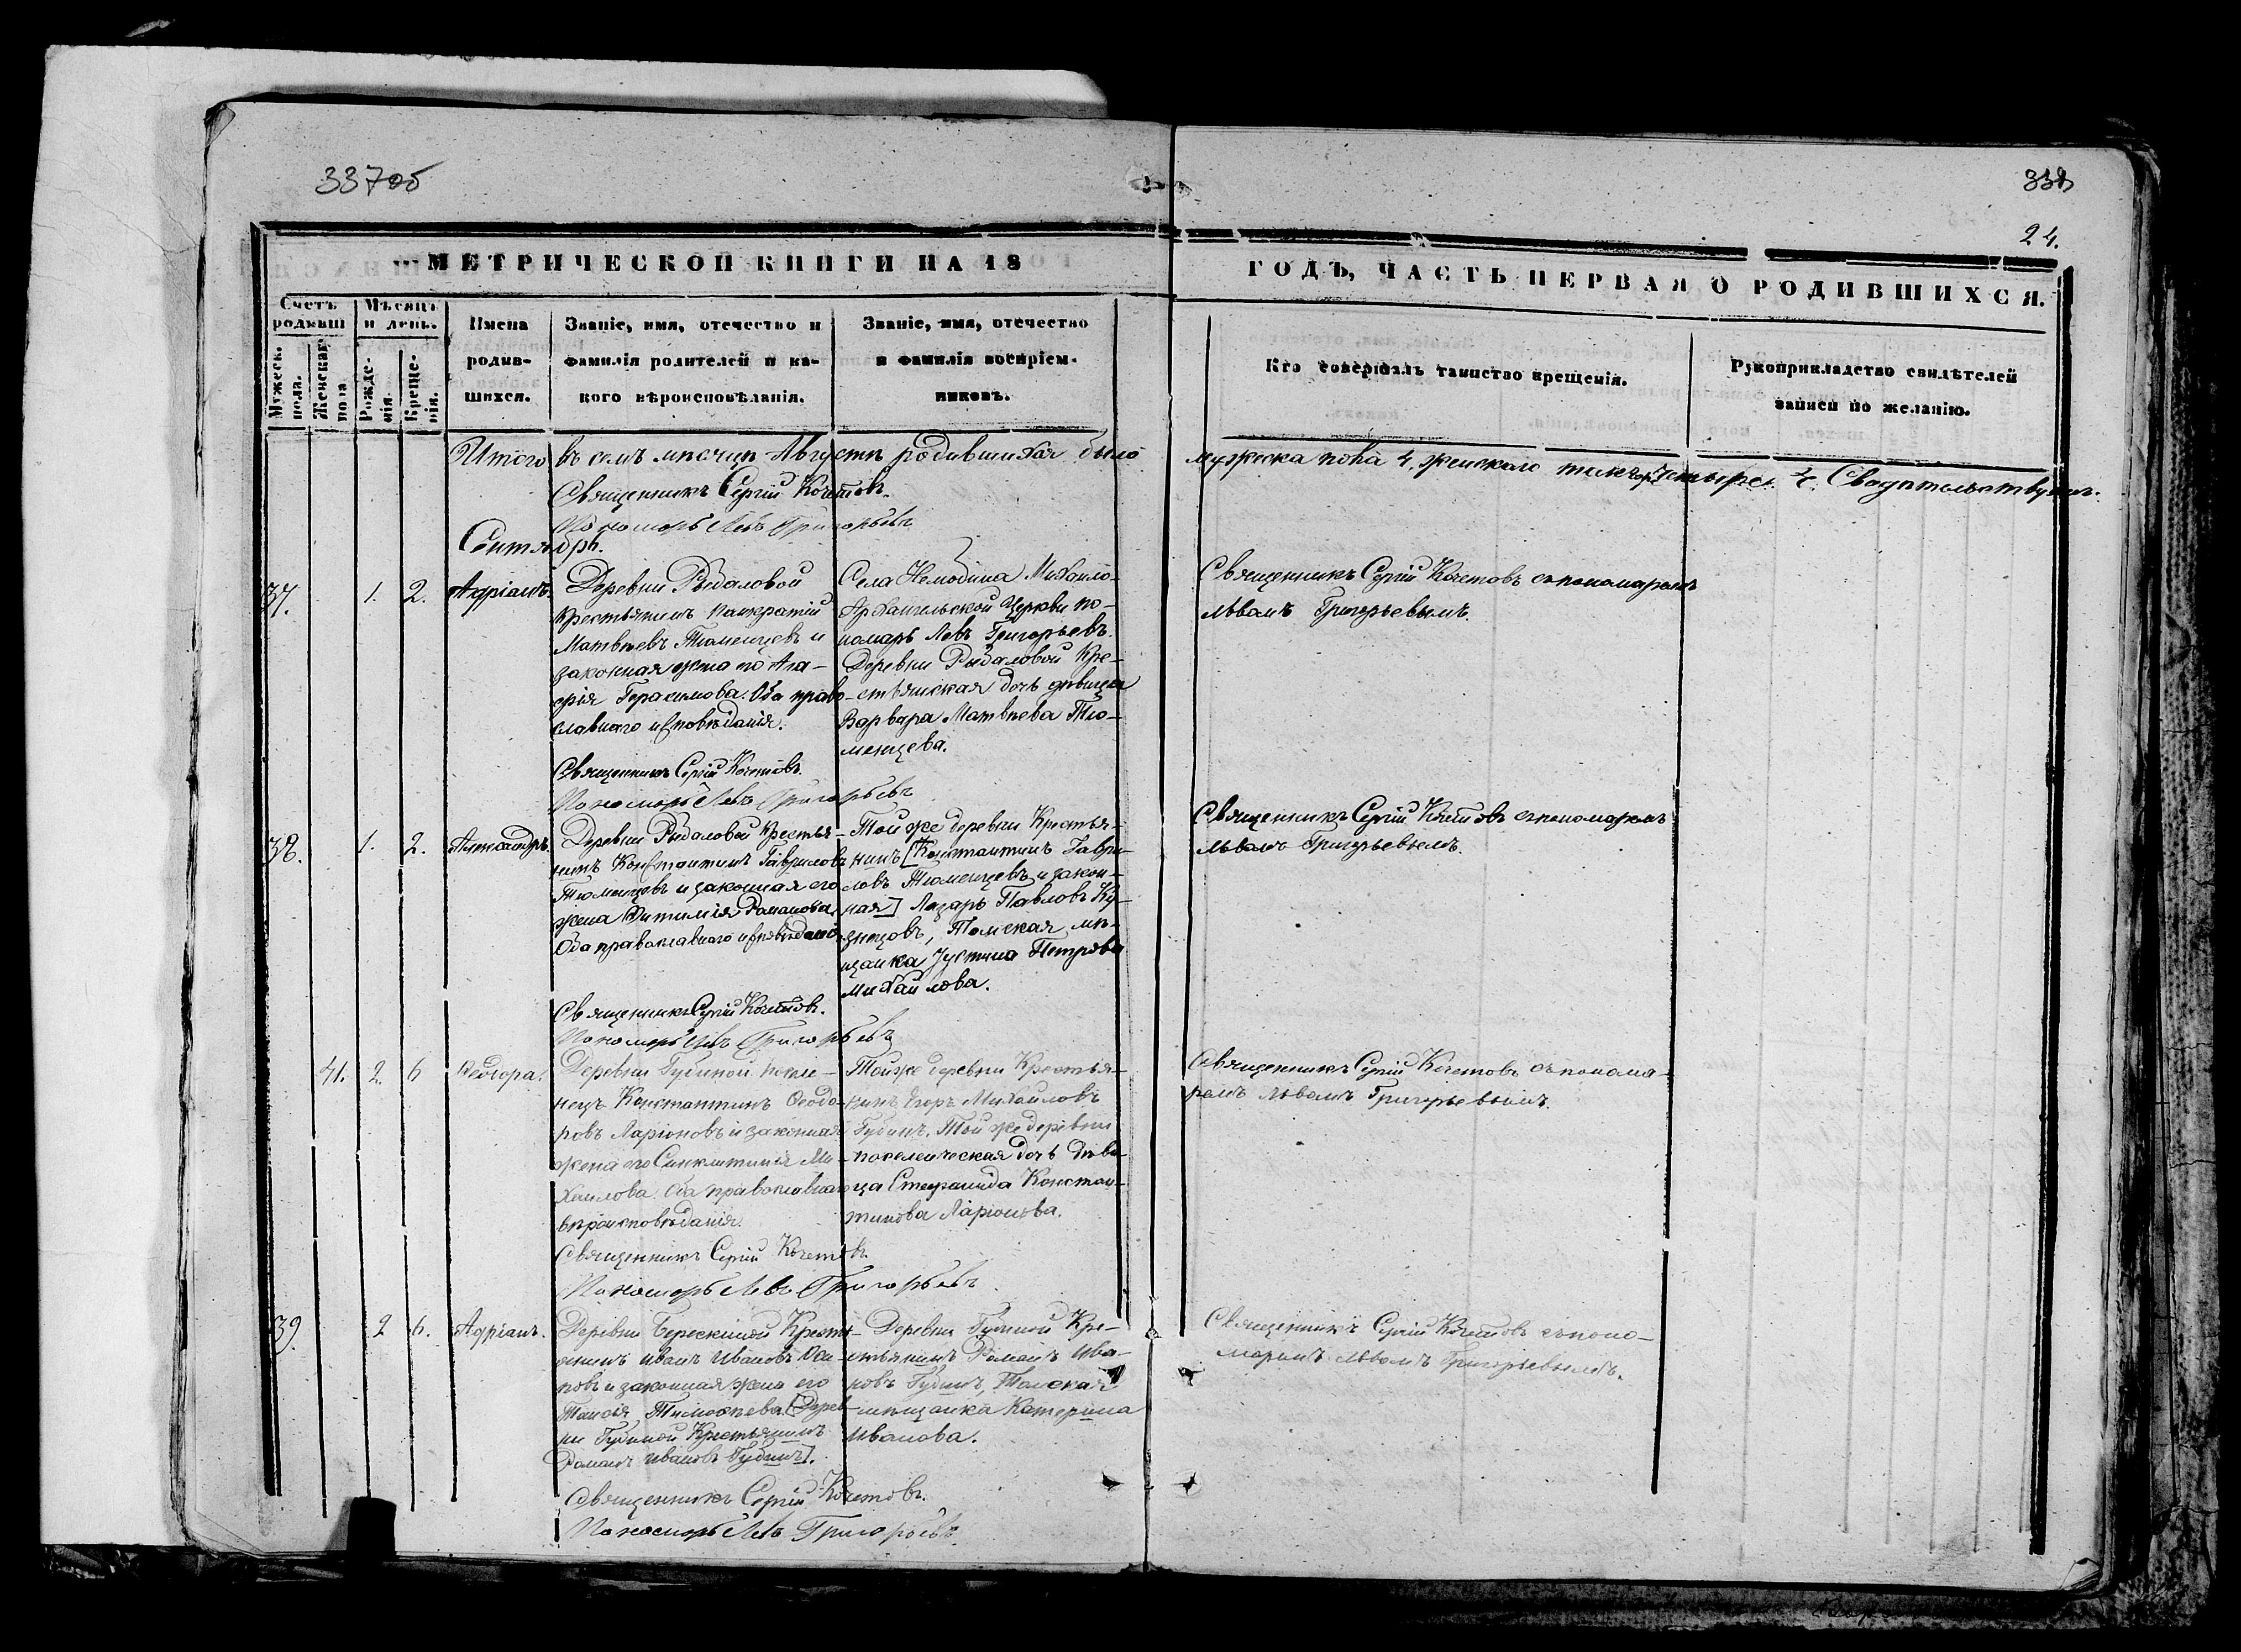 337об
338
24.
МЕТРИЧЕСКОЙ КНИГИ НА 18
ГОДЪ, ЧАСТЬ ПЕРВАЯ О РОДИВШИХСЯ.
Счетъ родивш
Мѣсяцъ и день.
Мужеск. пола.
Женскаг пола
Рожде- нія.
Креще- нія.
Имена
родив-
шихся.
Званіе, имя, отечество и
фамилія родителей и ка-
кого вѣроисповѣданія.
Званіе, имя, отечество
и фамилія воспріем-
никовъ.
Кто совершалъ таинство крещенія.
Рукоприкладство свидѣтелей
записи по желанію.
Итого въ семъ мѣсяцѣ Августѣ родившихся было мужеска пола 4, женскаго четыре 4. Свидѣтельствуютъ.
Священникъ Сергій Кочетовъ.
Пономарь Левъ Григорьевъ
Сентябрь.
37.
1.
2.
Адріанъ.
Деревни Рыбаловой
крестьянинъ Панкратій
Матвѣевъ Тюменцевъ и
законная жена его Ага-
фія Герасимова. Оба право-
славнаго исповѣданія.
Священникъ Сергій Кочетовъ.
Пономарь Левъ Григорьевъ
Села Нелюбина Михаило-
Архангельской Церкви по-
номарь Левъ Григорьевъ.
Деревни Рыбаловой Кре-
стьянская дочь дѣвица
Варвара Матвѣева Тю-
менцева.
Священникъ Сергій Кочетовъ съ пономаремъ
Львомъ Григорьевымъ.
38.
1.
2.
Александръ.
Деревни Рыбаловой Крестья-
нинъ Константинъ Гавриловъ
Тюменцевъ и законная его
жена Ефимія Романова,
Оба православнаго исповѣданія
Священникъ Сергій Кочетовъ.
Пономарь Левъ Григорьевъ
Той же деревни Крестья-
нинъ [Константинъ Гаври-
ловъ Тюменцевъ и закон-
ная] Лазарь Павловъ Ку-
знецовъ, Томская мѣ-
щанка Іустина Петрова
Михайлова.
Священникъ Сергій Кочетовъ съ пономаремъ
Львомъ Григорьевымъ.
41.
2.
6
Ѳеодора.
Деревни Губиной после-
нецъ Константинъ Ѳеодо-
ровъ Ларіоновъ и законная
жена его Синклитикія Ми-
хаилова. Оба православнаго
вѣроисповѣданія.
Священникъ Сергій Кочетовъ.
Пономарь Левъ Григорьевъ
Той же деревни Крестья-
нинъ Егоръ Михайловъ
Губинъ. Той же деревни
поселенческая дочь дѣви-
ца Стефанида Констан-
тинова Ларіонова.
Священникъ Сергій Кочетовъ съ понома-
ремъ Львомъ Григорьевымъ.
39.
2
6.
Адріанъ.
Деревни Берескиной Кресть-
янинъ Иванъ Ивановъ Оси-
повъ и законная жена его
Таисія Тимоѳеева. [Дерев-
ни Губиной Крестьянинъ
Романъ Ивановъ Губинъ].
Священникъ Сергій Кочетовъ.
Пономарь Левъ Григорьевъ.
Деревни Губиной Кре-
стьянинъ Романъ Ива-
новъ Губинъ, Томская
мѣщанка Катерина
Иванова.
Священникъ Сергій Кочетовъ съ поно-
маремъ Львомъ Григорьевымъ.